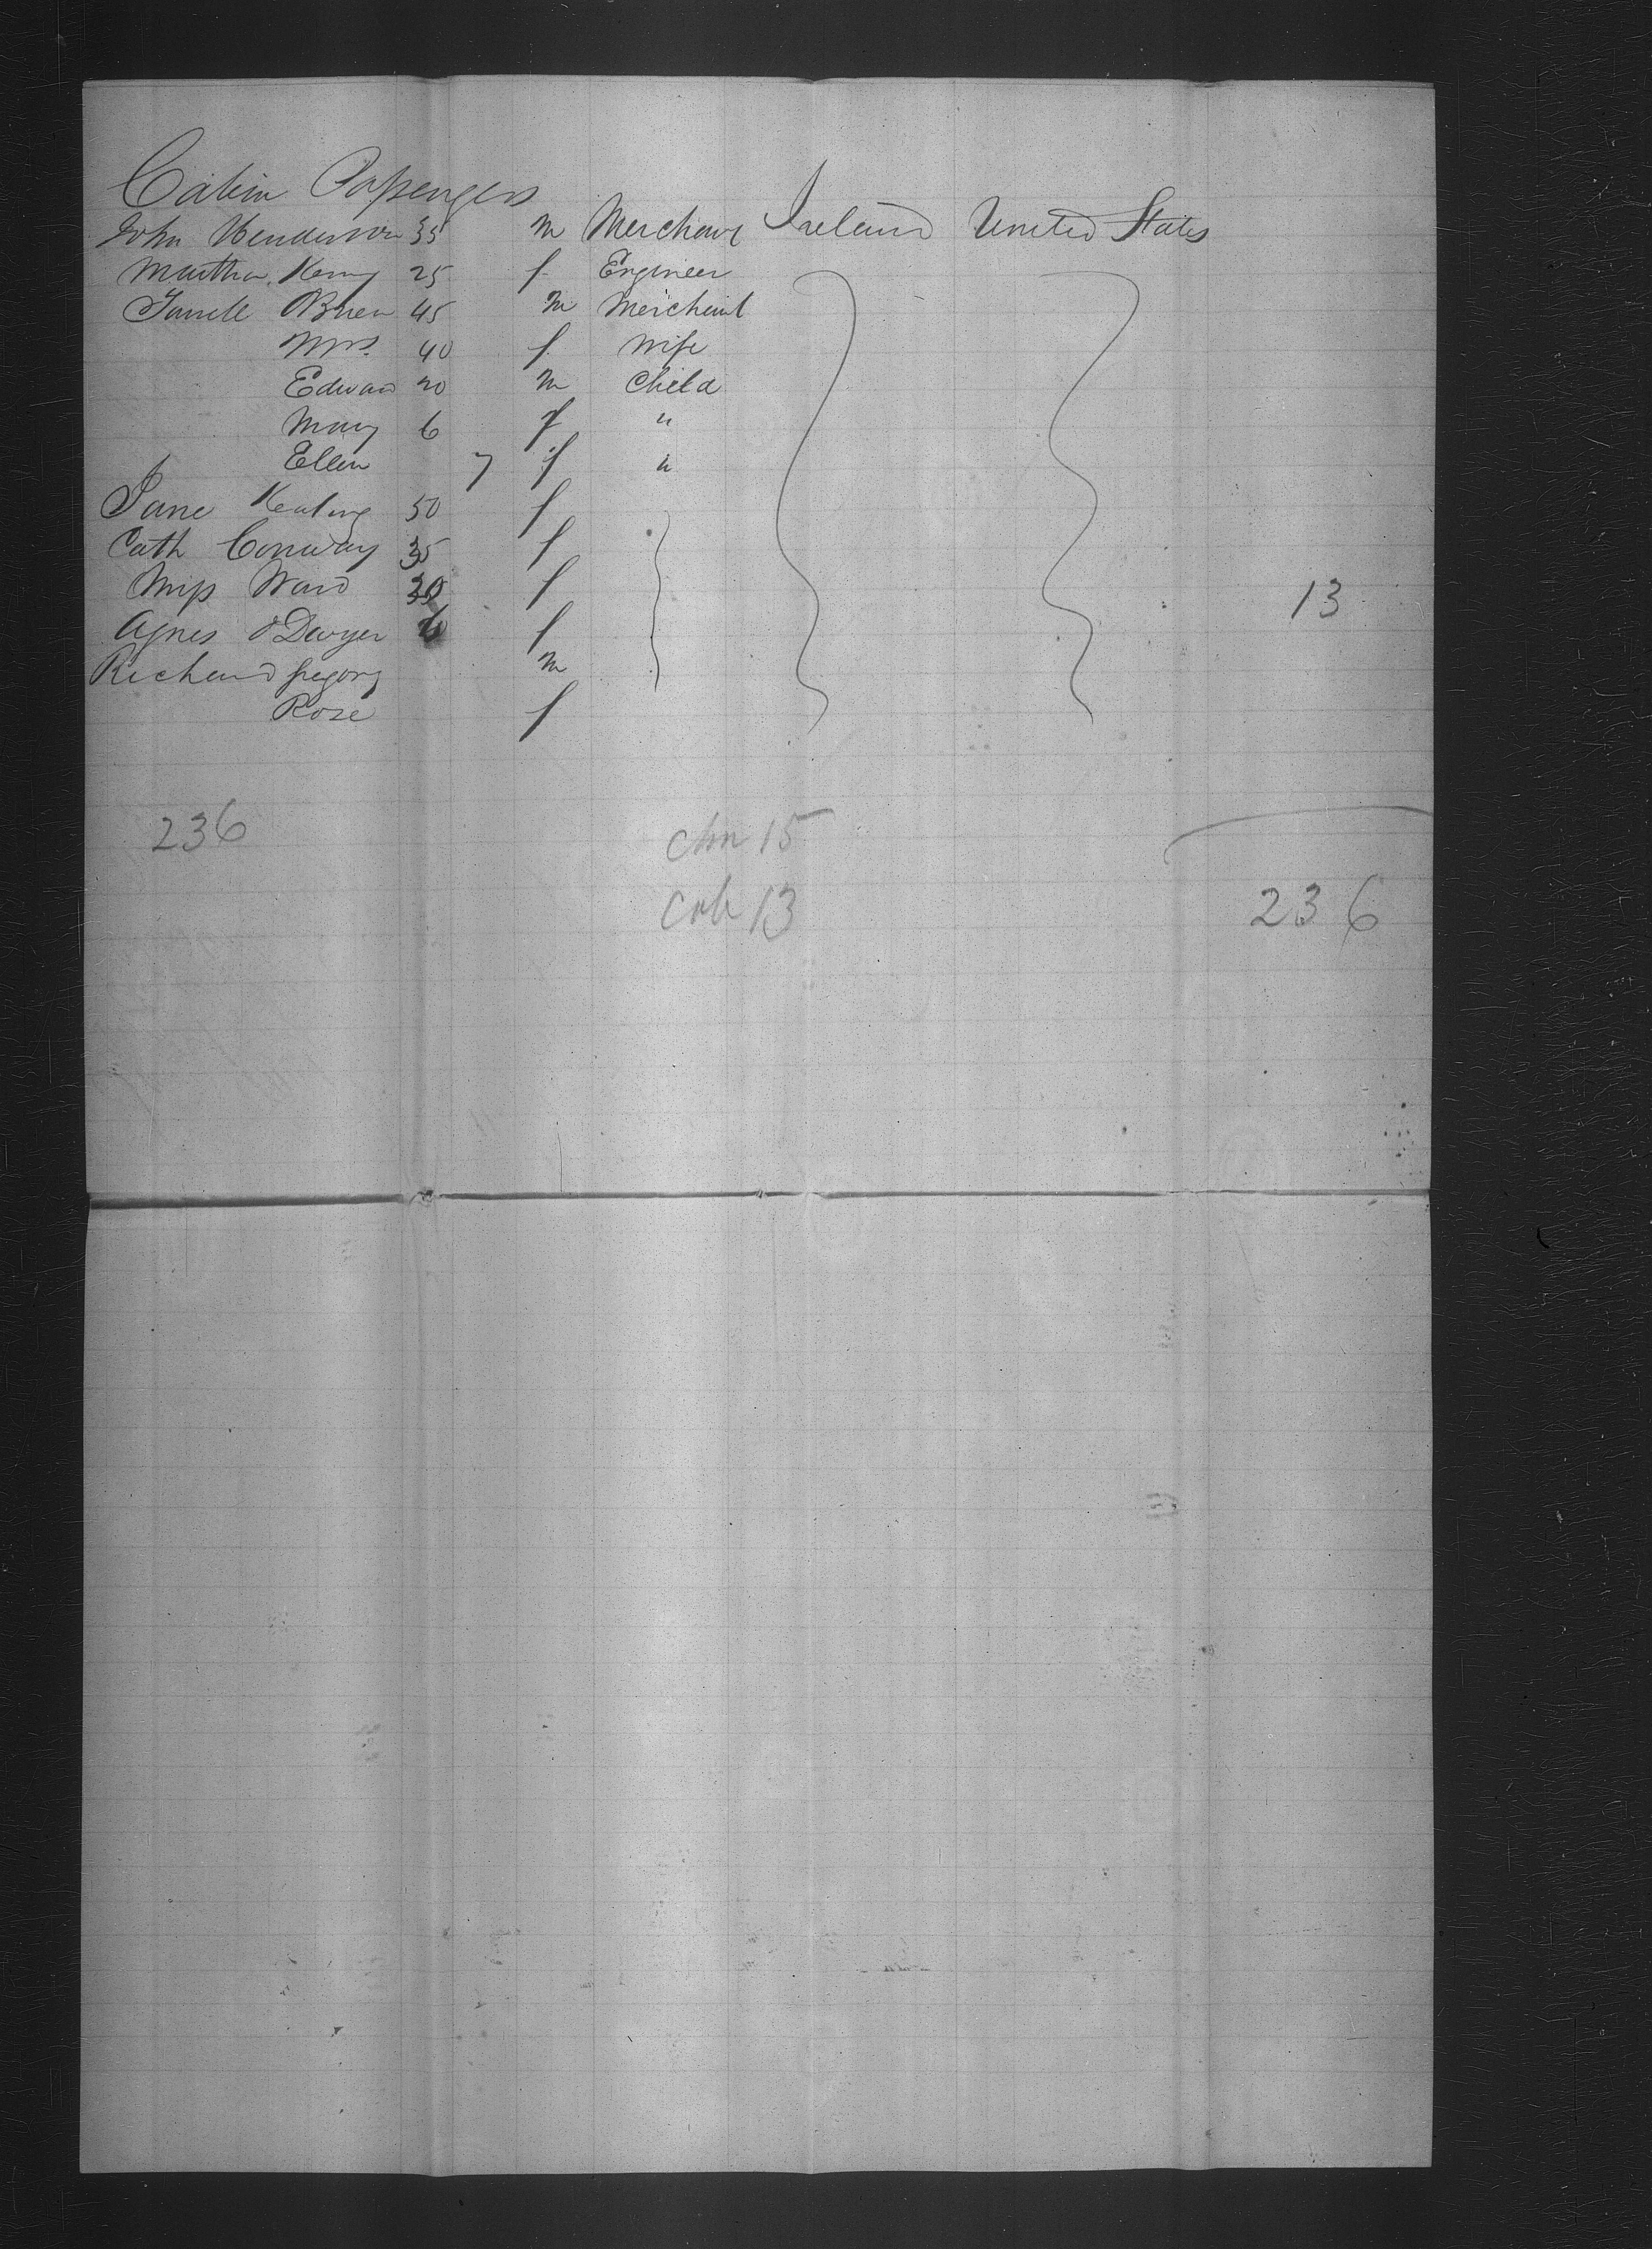 Cabin Passengers
John Henderson 35 m Merchant Ireland United States
Martha Kenny 25 f Engineer
O'Brien 45 m Merchant
Mrs. 40 f Wife
Edward 20 m Child
Mary 6 f "
Ellen 7 f "
Jane Keating 50 f
Cath Conway 35 f
Miss Ward 30 f
Agnes O'Dwyer f
13
Richard Gregory m
Rose f
236 Chn 15
Cab 13 236